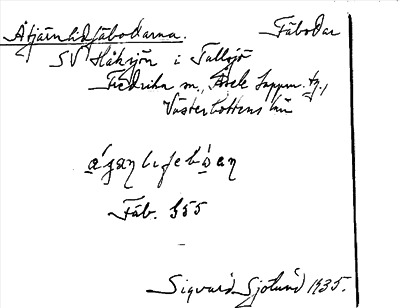 Åtjärnlidfäbodarna. Fäbodar
SV Håksjön i Tallsjö
Fredrika sn., Åsele lappm. tg.,
Västerbottens län
Fäb. 355
Sigvard Sjölund 1935.